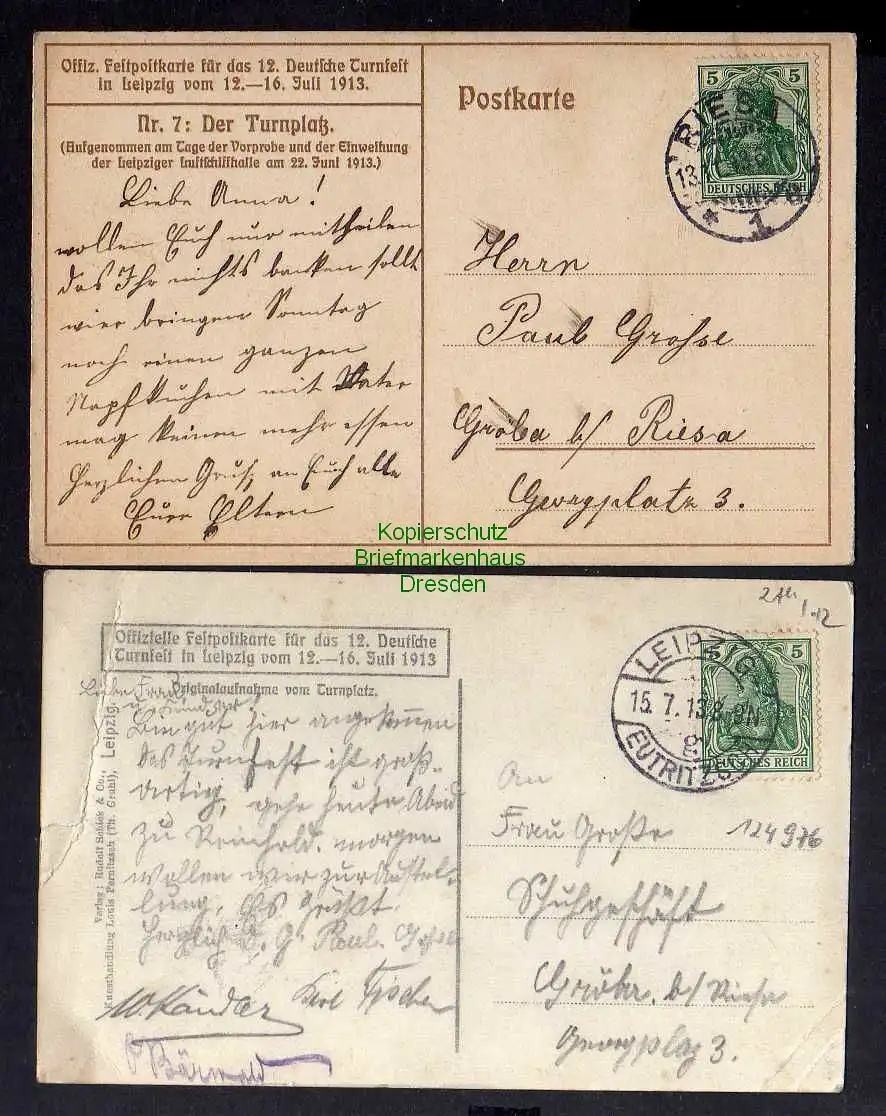 Offiz. Festpostkarte für das 12. Deutsche Turnfest
in Leipzig vom 12.—16. Juli 1913.
Nr. 7: Der Turnplatz.
(Aufgenommen am Tage der Vorprobe und der Einweihung
der Leipziger Luftschiffhalle am 22. Juni 1913.)
Liebe Anna!
wollen Euch nur mittheilen
das Ihr nichts backen sollt
wier bringen Sonntag
noch einen ganzen
Napfkuchen mit Vater
mag keinen mehr essen
Herzlichen Gruß an Euch alle
Eure Eltern
Postkarte
5 5
DEUTSCHES REICH
RIESA
13.
* 1
Herrn
Paul Grosse
Gröba b/ Riesa
Georgplatz 3.
Kopierschutz
Briefmarkenhaus
Dresden
Offizielle Festpostkarte für das 12. Deutsche
Turnfest in Leipzig vom 12.—16. Juli 1913
Originalaufnahme vom Turnplatz.
Liebe Frau
u. Kinder
Bin gut hier angekommen
das Turnfest ist groß-
artig, gehe heute Abend
zu Reinhold. morgen
wollen wir zur Ausstel-
lung. Es Grüßt
Herzlich d. G. Paul.
W Kändler Karl Fischer
Bärwald
Verlag: Rudolf Schick & Co., Leipzig.
Kunsthandlung Louis Pernitzsch (Th. Gruhl), Leipzig.
LEIPZIG
15.7.13.8-9N
EUTRITZSCH
5 5
DEUTSCHES REICH
124976
An
Frau Große
Schuhgeschäft
Gröba. b/ Riesa
Georgplaz 3.